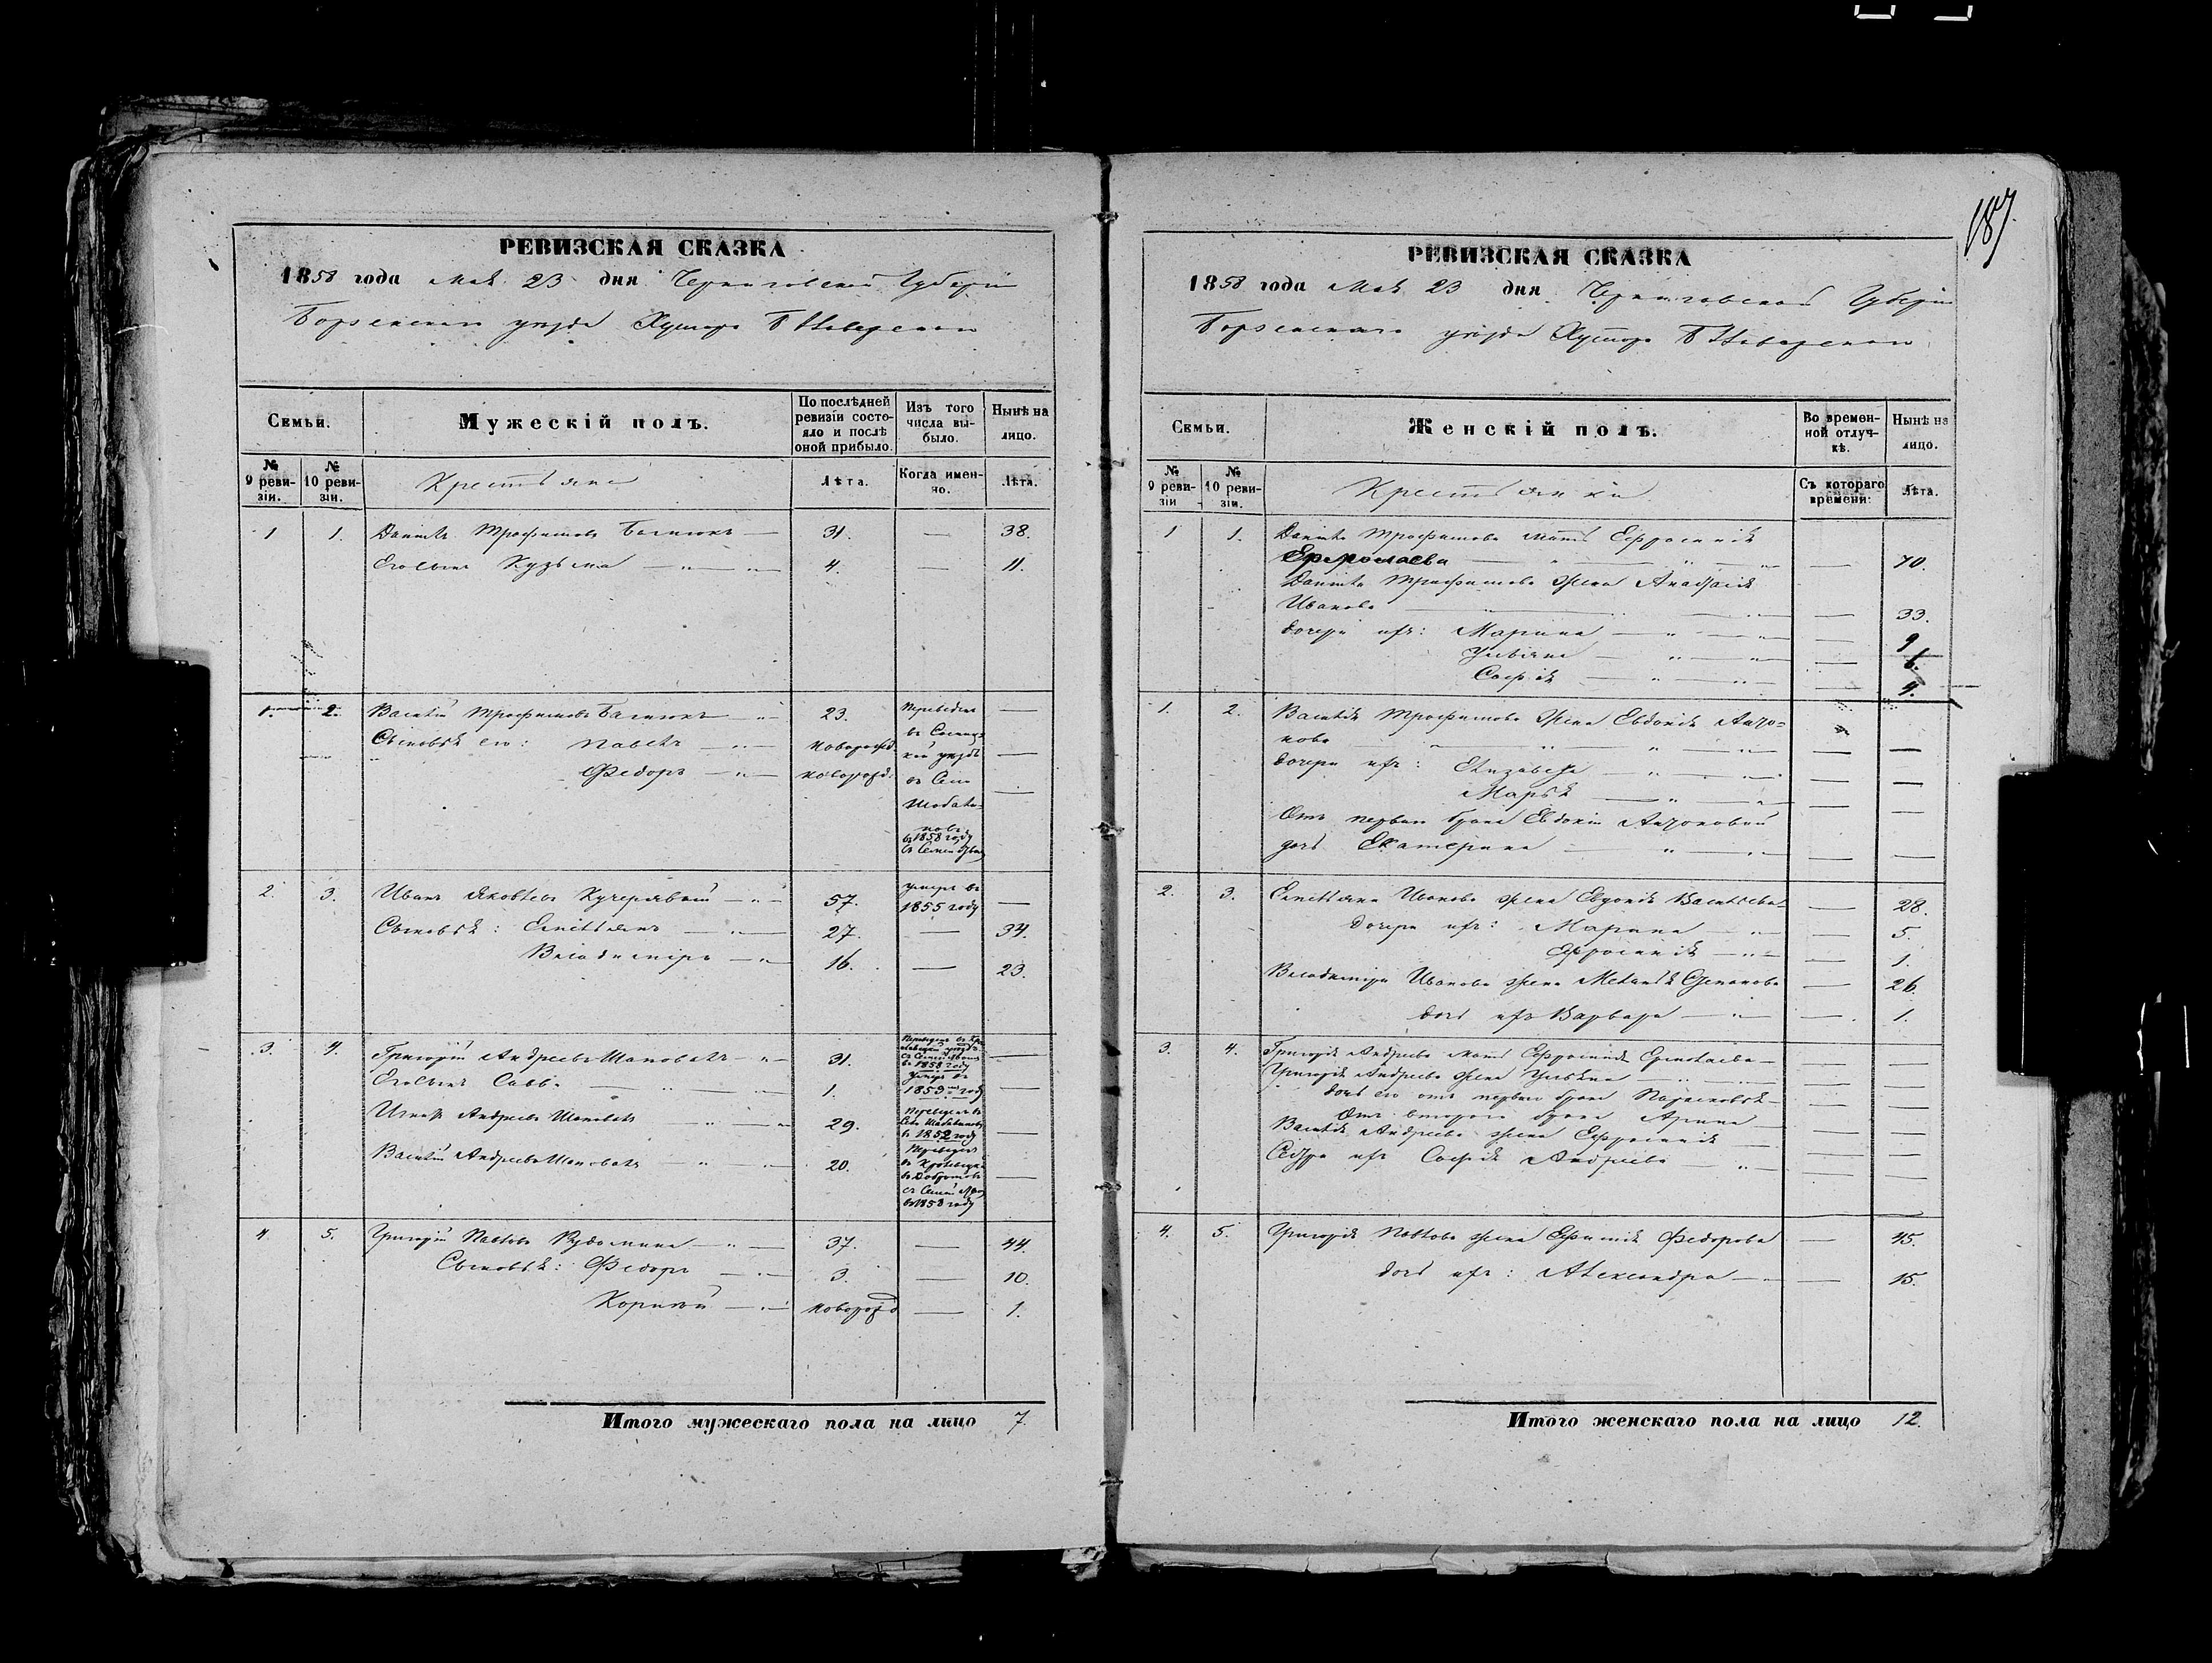 187
РЕВИЗСКАЯ СКАЗКА
1858 года Мая 23 дня Черниговской Губерніи
Борзенскаго уезда Хутора
Семьи.
Мужескій полъ.
По послѣдней ревизіи состояло и послѣ оной прибыло.
Изъ того числа выбыло.
Нынѣ на лицо.
№ 9 ревизіи.
№ 10 ревизіи.
Крестьяне
Лѣта.
Когда именно.
Лѣта.
1 1. Данило Трофимовъ 31. — 38.
Его сынъ Кузьма — „ — „ — 4. — 11.
1. 2. Василій Трофимовъ — „ — 23. Переведенъ —
въ
Сыновья его: Павелъ — „ — новорожд. уездъ —
Федоръ — „ — новорожд. въ Село —
въ 1858 году
съ Семействомъ
2. 3. Иванъ Яковлевъ Кучерявый — „ — 57. умеръ въ 1855 году —
Сыновья: Емельянъ — „ — 27. — 34.
Владимиръ — „ — 16. — 23.
3. 4. Григорій Андреевъ Шаповалъ — „ — 31. Переведенъ въ —
уездъ
съ Семействомъ
въ 1858 году
Его сынъ Савва — „ — 1. умеръ въ 1853 году —
Андреевъ Шаповалъ „ — 29. Переведенъ въ Село —
въ 1852 году
Василій Андреевъ Шаповалъ „ — 20. Переведенъ —
въ
съ
въ 1858 году
4. 5. Григорій Павловъ — „ — 37. — 44.
Сыновья: Федоръ — „ — 3. — 10.
Корнѣй — „ — новорожд — 1.
Итого мужескаго пола на лицо 7.
РЕВИЗСКАЯ СКАЗКА
1858 года Мая 23 дня Черниговской Губерніи
Борзенскаго уезда Хутора
Семьи.
Женскій полъ.
Во временной отлучкѣ.
Нынѣ на лицо.
№ 9 ревизіи
№ 10 ревизіи.
Крестьянки
Съ котораго времени:
Лѣта.
1 1. Данила Трофимова мать Ефросинія
Ермолаева — „ — „ — 70.
Данила Трофимова жена Анастасія
Иванова — „ — 33.
дочери ихъ: Марина — „ — „ — 9
Ульяна — „ — „ — 6.
Софія — „ — „ — 4.
1. 2. Василія Трофимова жена Евдокія
нова — „ — „ — —
дочери ихъ: Елизавета — „ — „ — —
Марья — „ — „ — —
Отъ перваго брака Евдокіи
дочь Екатерина — „ — „ — —
2. 3. Емельяна Иванова жена Евдокія Васильева — 28.
Дочери ихъ: Марина — „ — 5.
Ефросинія — „ — 1.
Владимира Иванова жена Меланія Степанова — 26.
дочь ихъ Варвара — „ — 1.
3. 4. Григорія Андреева мать Ефросинія Ермолаева — — —
Григорія Андреева жена Ульяна — „ — — —
дочь его отъ перваго брака Парасковья — — —
Отъ втораго брака Арина — — —
Василія Андреева жена Ефросинія — — —
Сестра ихъ Софія Андреева — „ — — —
4. 5. Григорія Павлова жена Ефимія Федорова — 45.
дочь ихъ: Александра — „ — 15.
Итого женскаго пола на лицо 12.